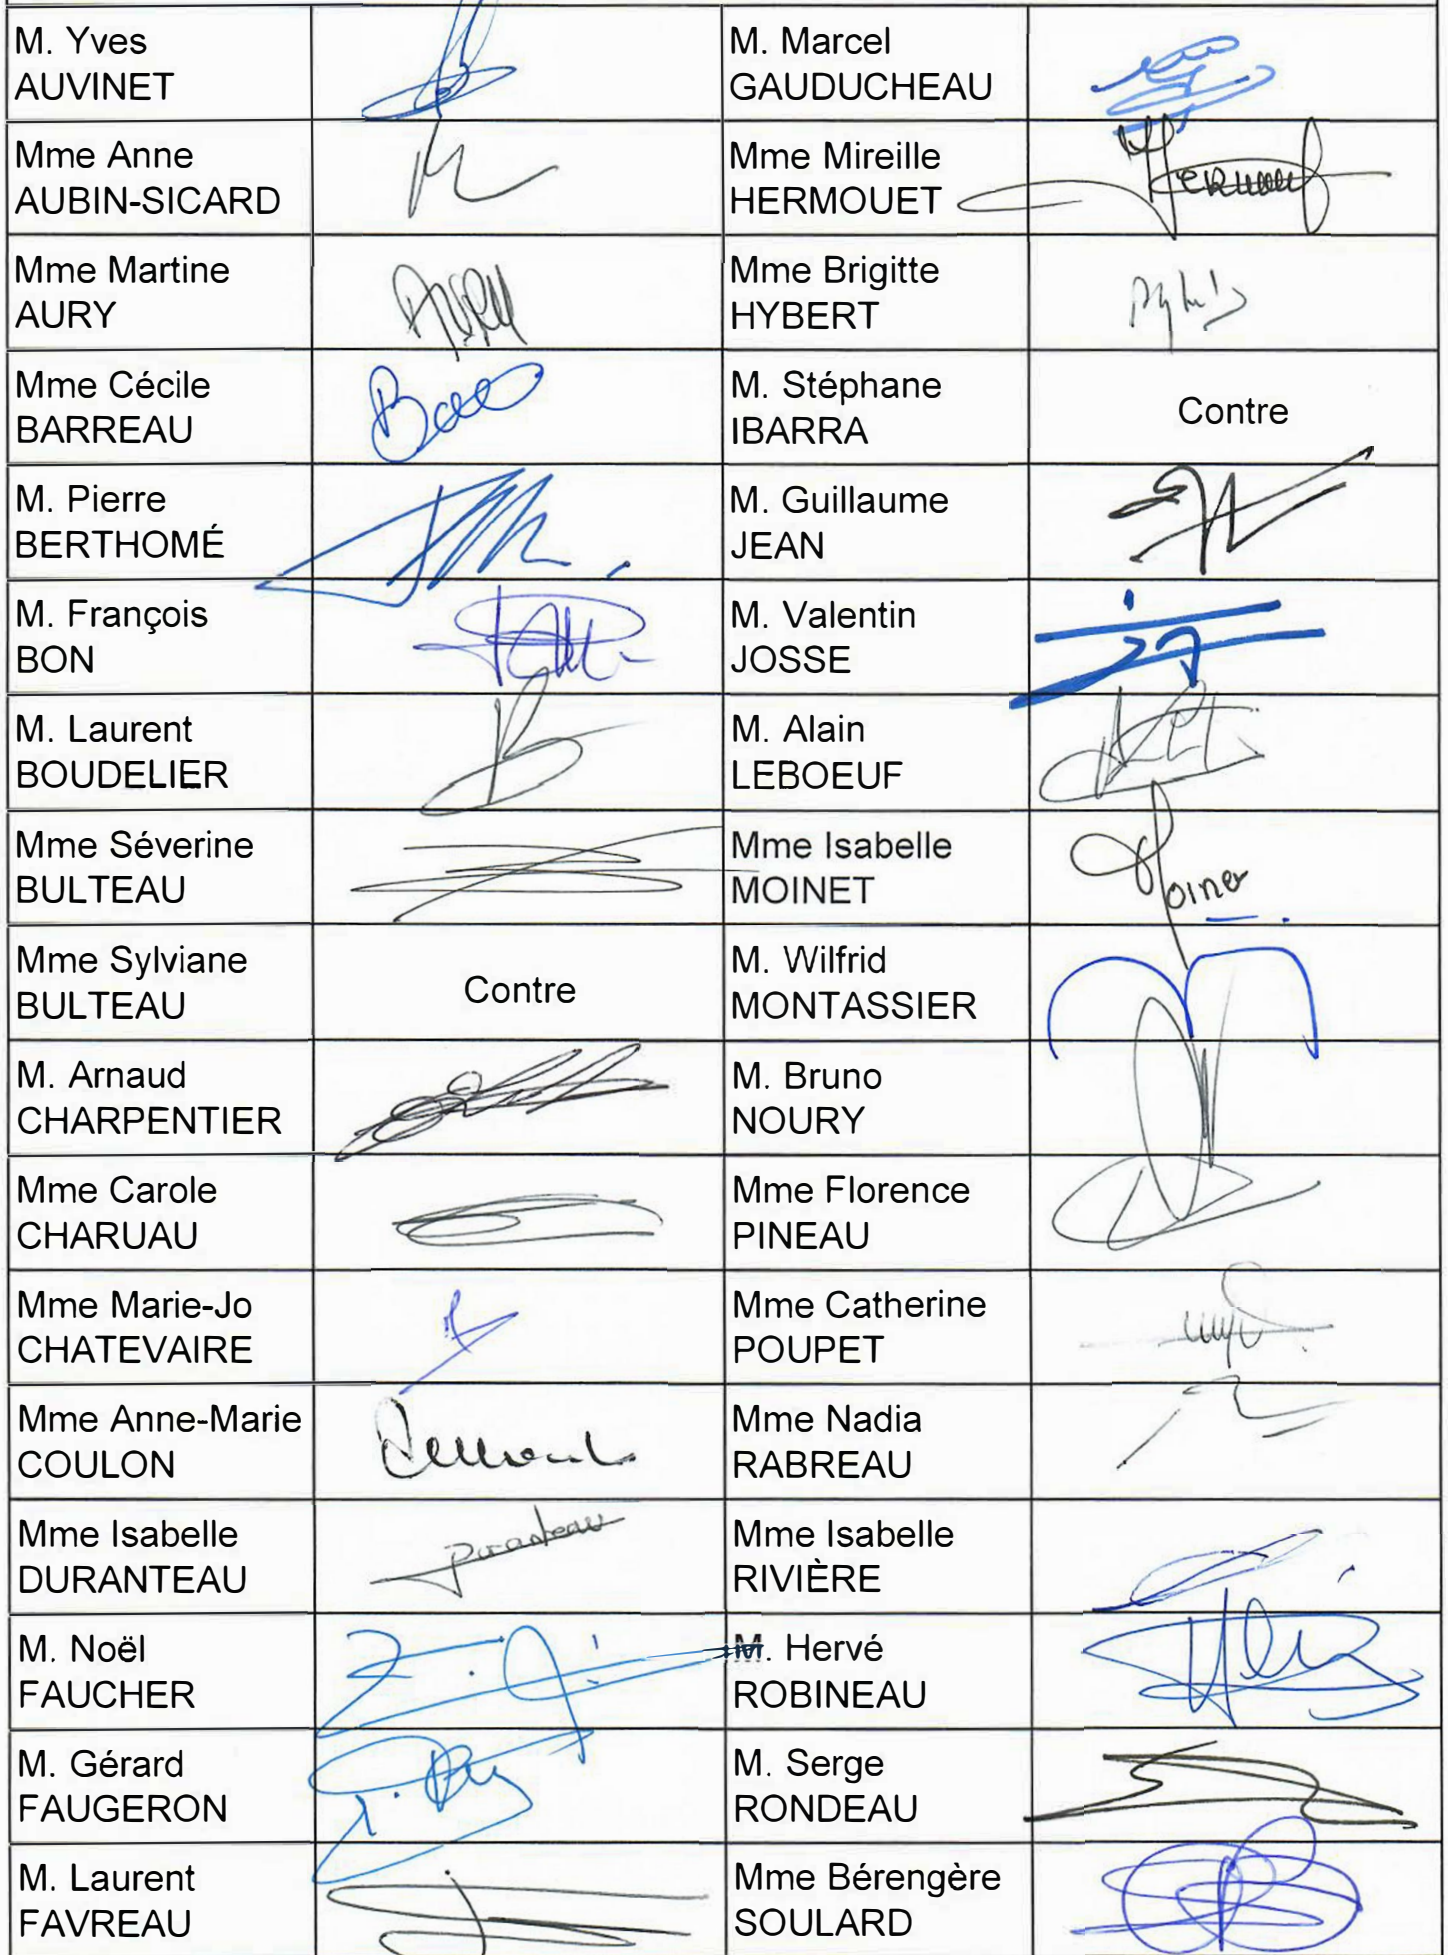 M. Yves
AUVINET
M. Marcel
GAUDUCHEAU
Mme Anne
AUBIN-SICARD
Mme Mireille
HERMOUET
Hermouet
Mme Martine
AURY
Mme Brigitte
HYBERT
Mme Cécile
BARREAU
M. Stéphane
IBARRA
Contre
M. Pierre
BERTHOMÉ
M. Guillaume
JEAN
M. François
BON
M. Valentin
JOSSE
M. Laurent
BOUDELIER
M. Alain
LEBOEUF
Mme Séverine
BULTEAU
Mme Isabelle
MOINET
Moinet
Mme Sylviane
BULTEAU
Contre
M. Wilfrid
MONTASSIER
M. Arnaud
CHARPENTIER
M. Bruno
NOURY
Mme Carole
CHARUAU
Mme Florence
PINEAU
Mme Marie-Jo
CHATEVAIRE
Mme Catherine
POUPET
Mme Anne-Marie
COULON
Mme Nadia
RABREAU
Mme Isabelle
DURANTEAU
Duranteau
Mme Isabelle
RIVIÈRE
M. Noël
FAUCHER
M. Hervé
ROBINEAU
M. Gérard
FAUGERON
M. Serge
RONDEAU
M. Laurent
FAVREAU
Mme Bérengère
SOULARD